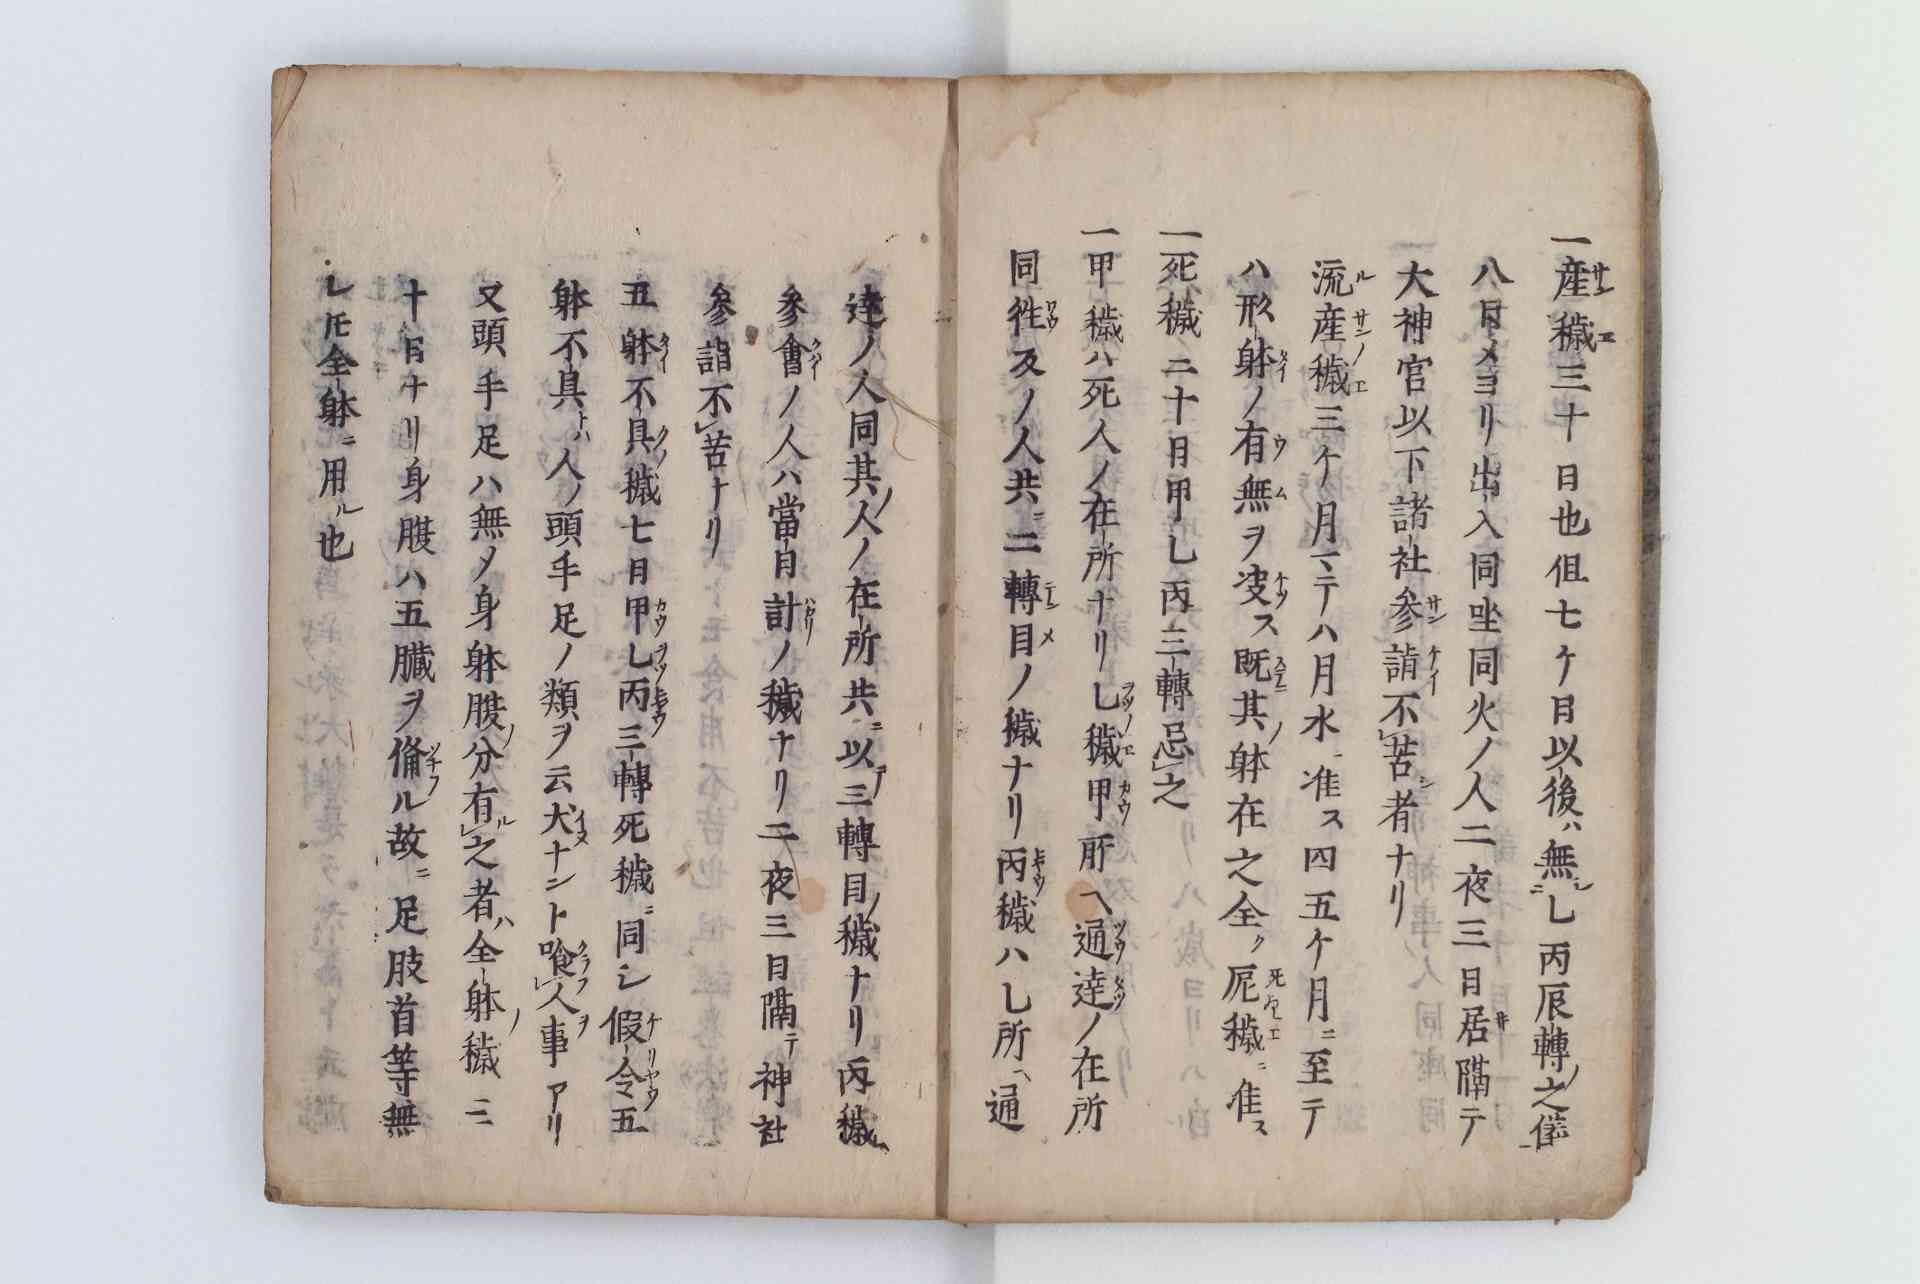 一産穢三十日也但七ケ日以後ハ無乙丙展轉之儀
八日メヨリ出入同坐同火ノ人二夜三日居隔テ
大神官以下諸社参詣不苦者ナリ
流産穢三ケ月マテハ月水ニ准ス四五ケ月ニ至テ
ハ形躰ノ有無ヲ決ス既其躰在之全ク死穢ニ准ス
一死穢二十日甲乙丙三轉忌之
一甲穢ハ死人ノ在所ナリ乙穢甲所ヘ通達ノ在所
同徃反ノ人共ニ二轉目ノ穢ナリ丙穢ハ乙所ヘ通
達ノ人同其人ノ在所共ニ以三轉目穢ナリ丙穢
参會ノ人ハ當日計ノ穢ナリ二夜三日隔テ神社
参詣不苦ナリ
五躰不具穢七日甲乙丙三轉死穢ニ同シ假令五
躰不具ナハ人ノ頭手足ノ類ヲ云犬ナント喰人事アリ
又頭手足ハ無メ身躰腹分有之者ハ全躰穢三
十日ナリ身腹ハ五臓ヲ備ル故ニ足肢首等無
レ𪜈全躰ニ用ル也